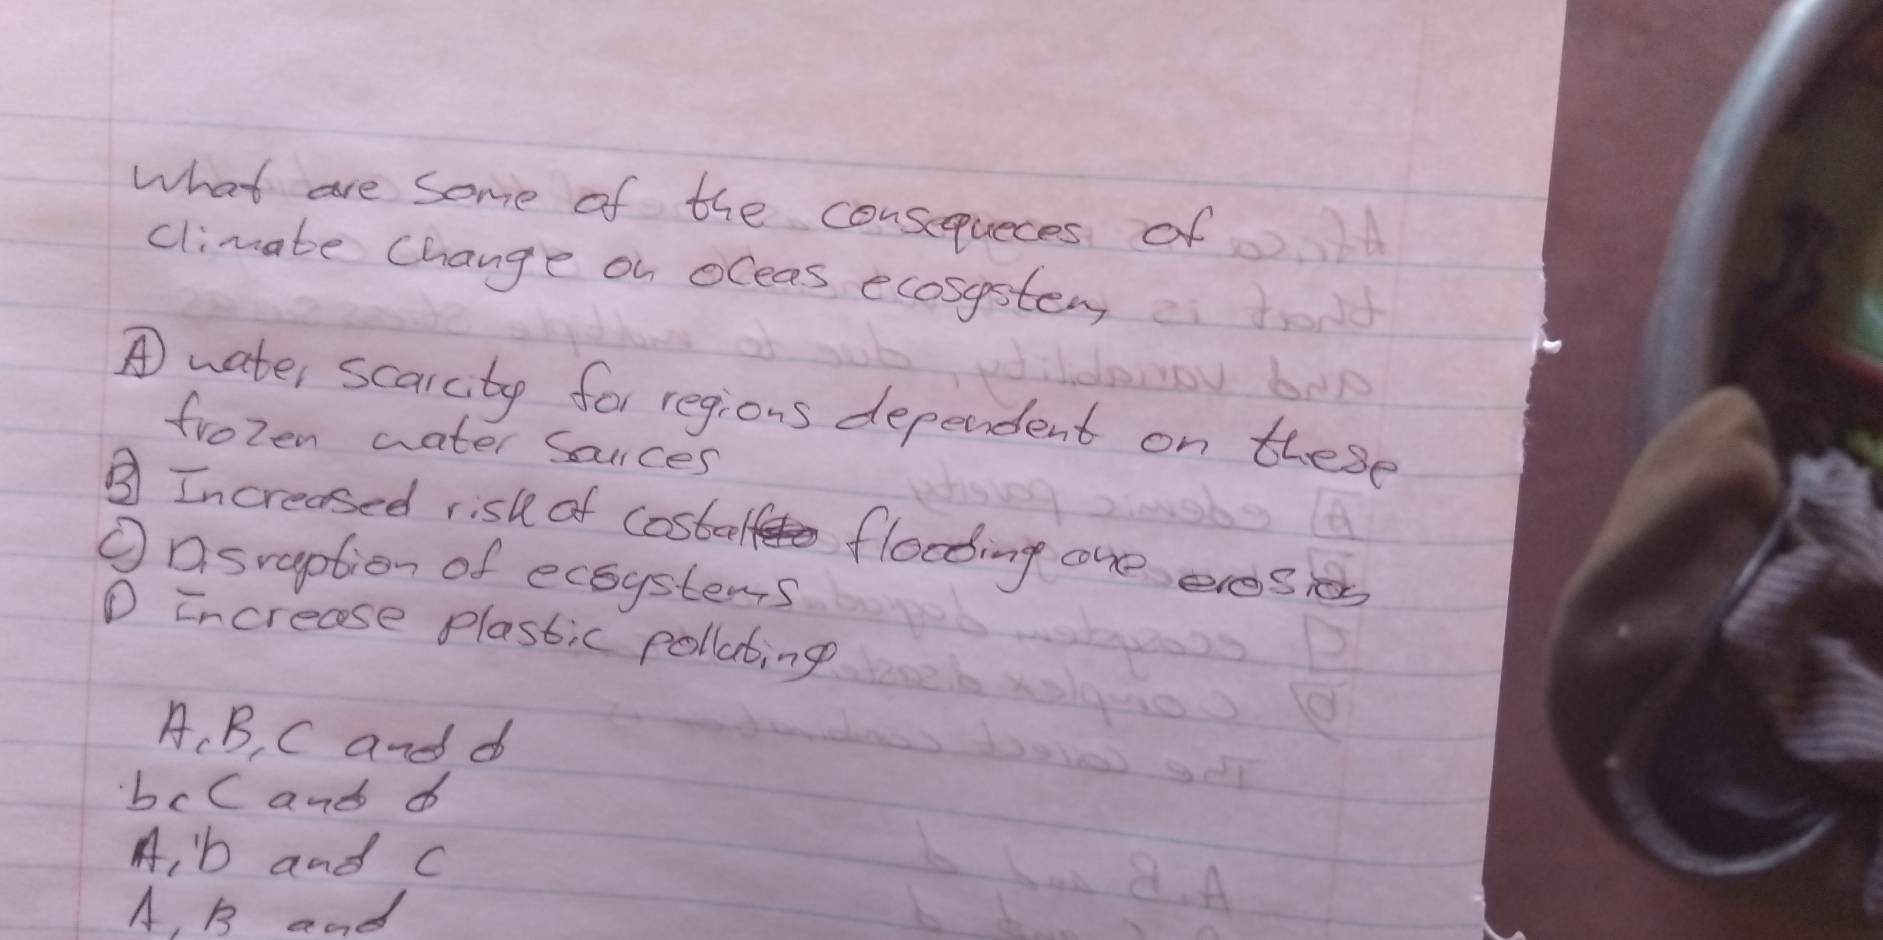 What are some of the consequeces of
climabe change on oceas ecosystem
A water scarcity for regions dependent on these
frozen water sources
B Increased risk of costal flooding one erosion
C Disraption of ecosystems
D increase plastic pollubing
A, B, C and d
b, C and d
A, b and C
A, B and